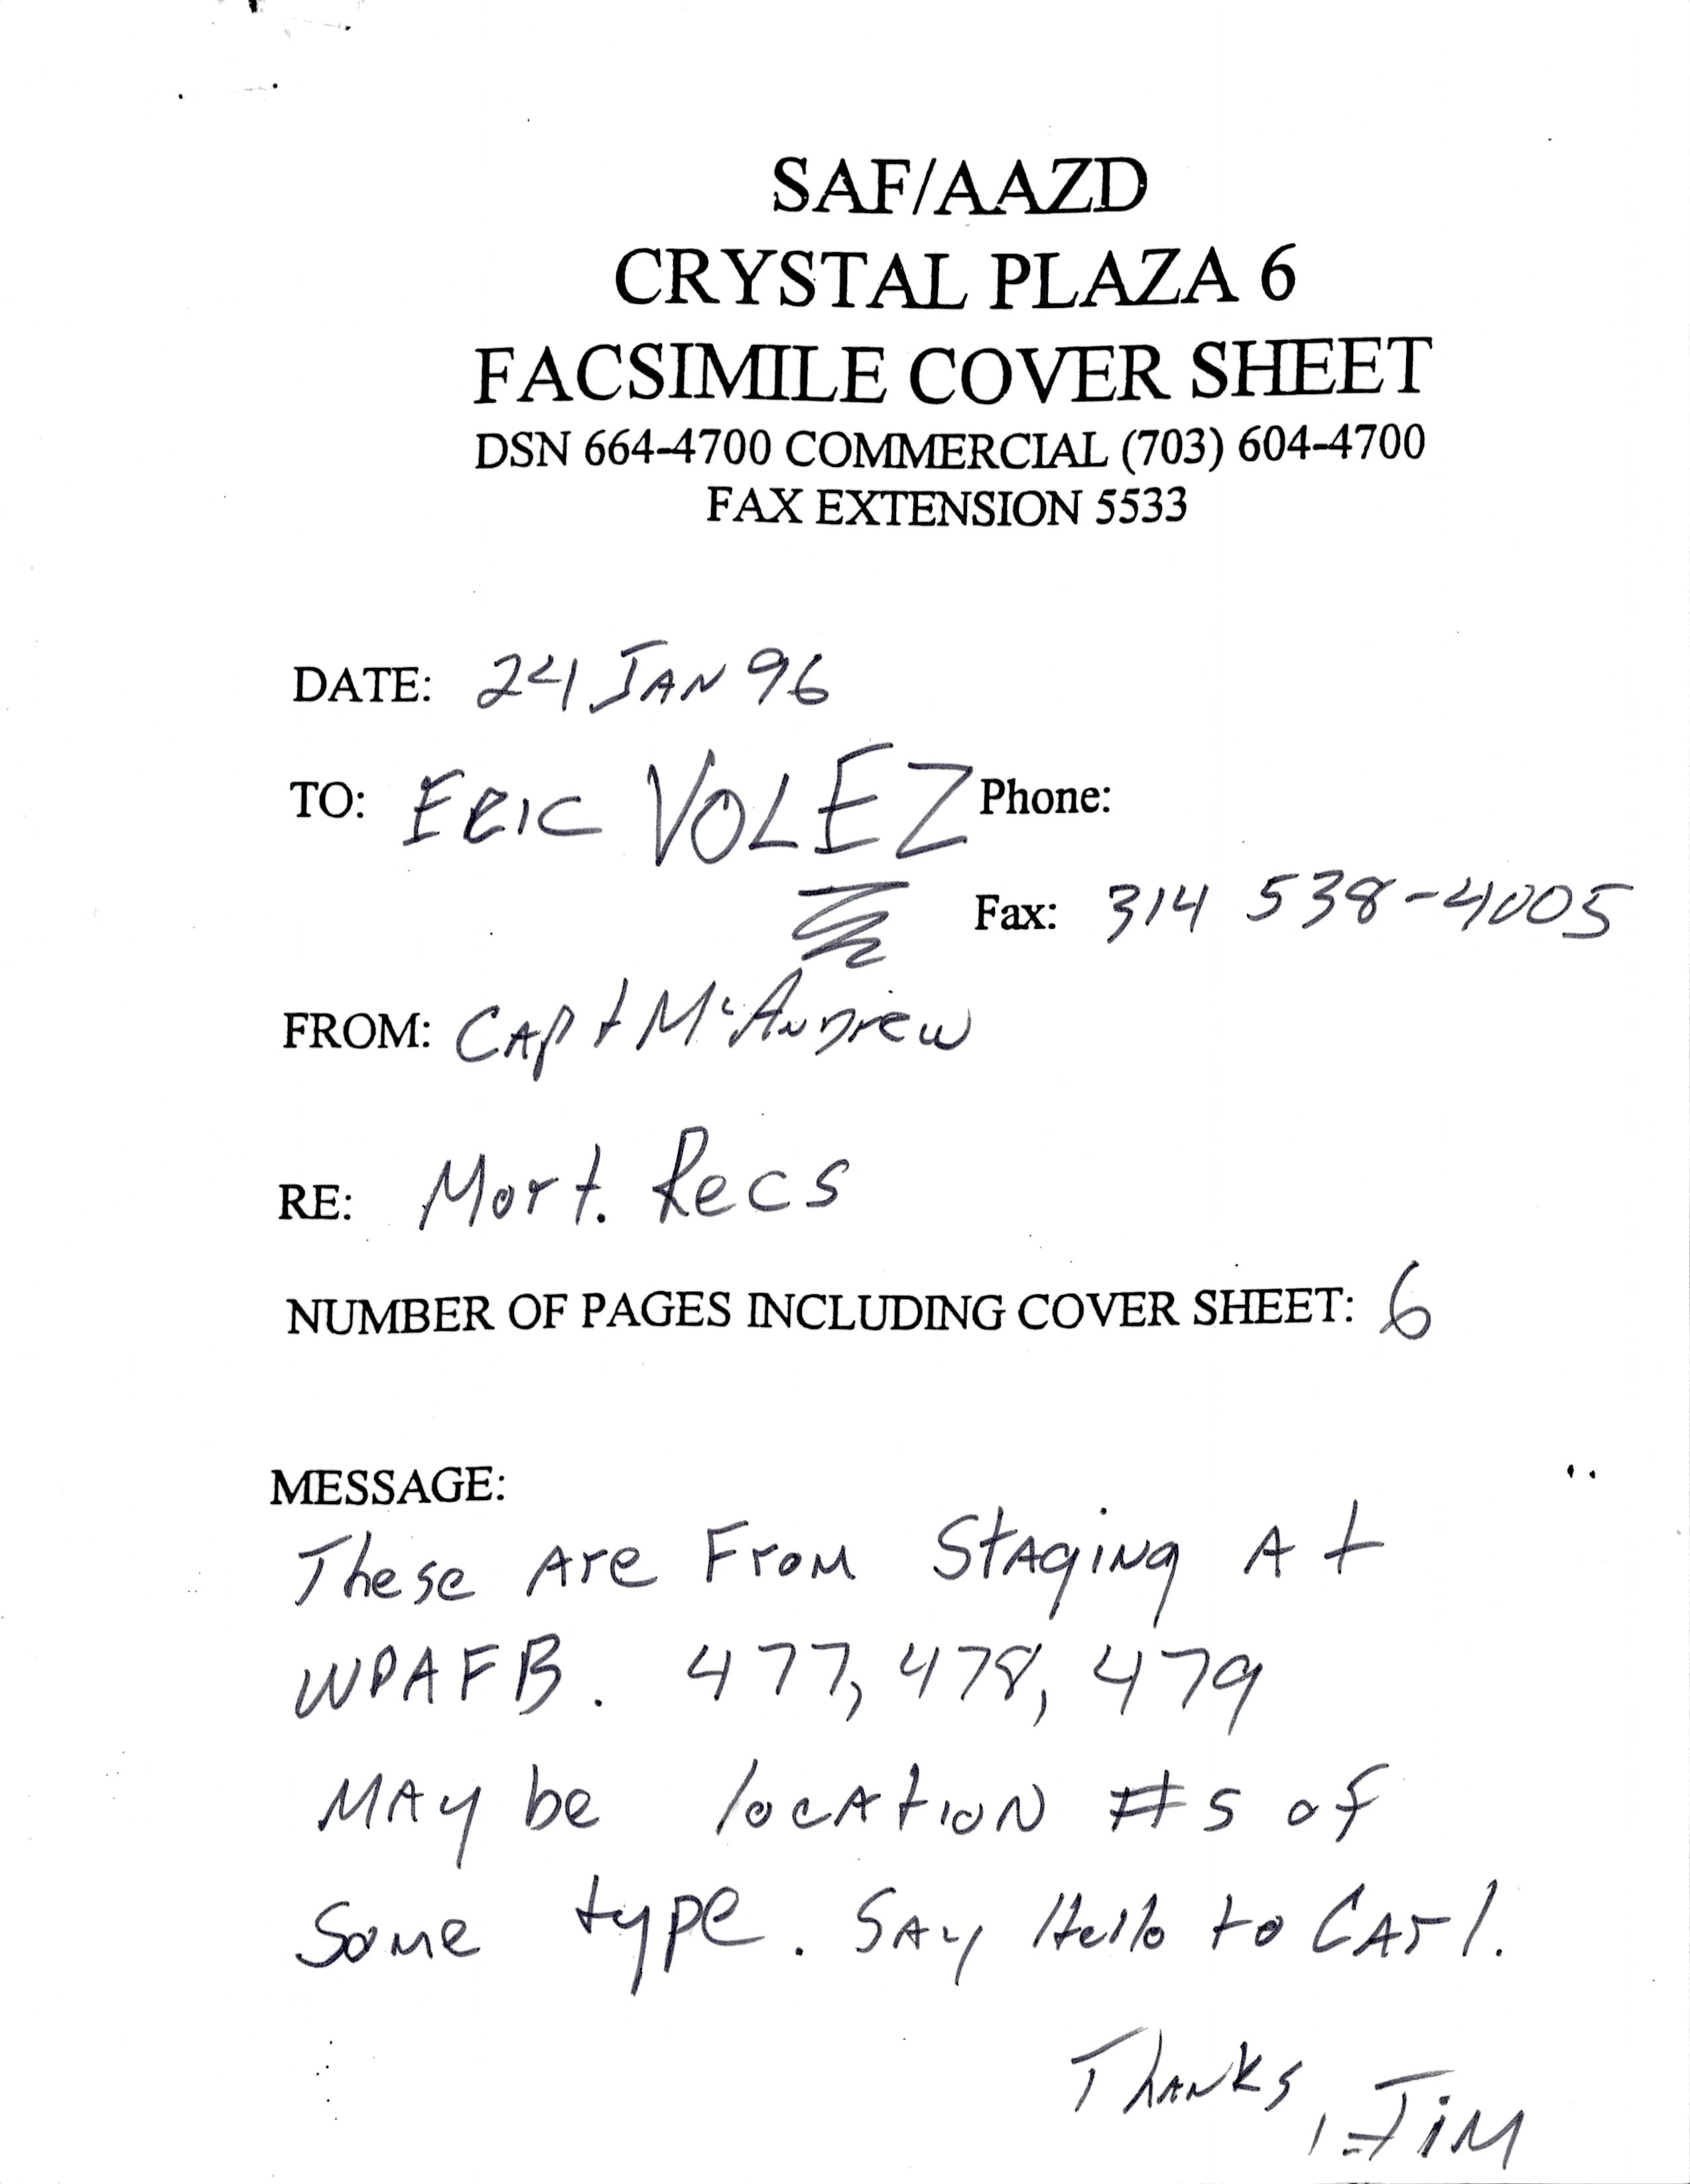 SAF/AAZD
CRYSTAL PLAZA 6
FACSIMILE COVER SHEET
DSN 664-4700 COMMERCIAL (703) 604-4700
FAX EXTENSION 5533
DATE: 24 JAN 96
TO: ERIC VOLEZ Phone:
Fax: 314 538-4005
FROM: CAPt McANDrew
RE: Mort. Recs
NUMBER OF PAGES INCLUDING COVER SHEET: 6
MESSAGE:
These Are From Staging At
WPAFB. 477, 478, 479
MAy be locAtioN #s of
Some type. SAy Hello to CArl.
THANKS,
JiM